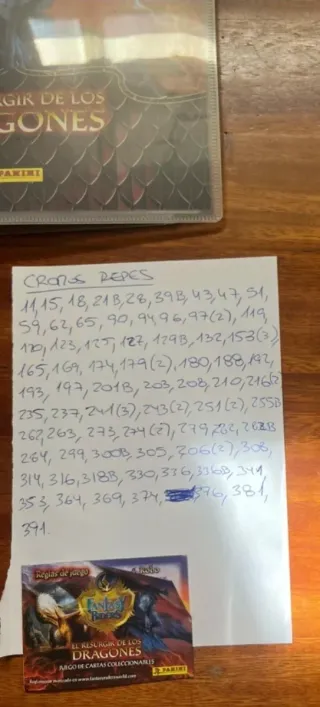 RGIR DE LOS
GONES
PANINI
CROMOS REPES
11, 15, 18, 21B, 28, 39B, 43, 47, 51,
59, 62, 65, 90, 94, 96, 97(2), 119,
120, 123, 125, 127, 129B, 132, 153(3),
165, 169, 174, 179(2), 180, 188, 192,
193, 197, 201B, 203, 208, 210, 216(2)
235, 237, 241(3), 243(2), 251(2), 255B
262, 263, 273, 274(2), 279, 282, 282B
284, 299, 300B, 305, 306(2), 308,
314, 316, 318B, 330, 336, 336B, 341
353, 364, 369, 374, 376, 381,
391.
Reglas de juego
FANTASY
RIDERS
EL RESURGIR DE LOS
DRAGONES
JUEGO DE CARTAS COLECCIONABLES
PANINI